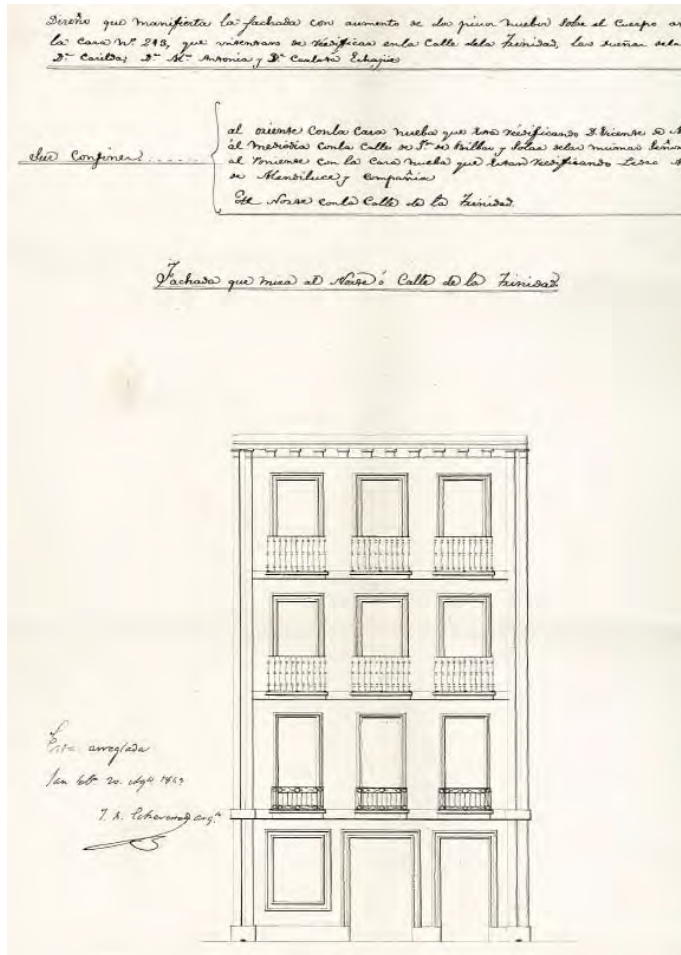 Diseño que manifiesta la fachada con aumento de dos pisos nuebos sobre el Cuerpo
la Casa Nº 243, que intentan de redificar en la Calle dela Trinidad, las dueñas
Dª Casilda, Dª Mª Antonia y Dª Echagüe
Sus Confines
al oriente Con la Casa nueba que está redificando D. Vicente de
al mediodia con la Calle de Sn de Bilbao y Solar delas mismas Señor
al Poniente con la Casa nueba que estan redificando Pedro
de Mendiluce y Compañia
El Norte con la Calle de la Trinidad.
Fachada que mira al Norte ó Calle de la Trinidad.
Está arreglada
San Sebn 20. Agto
J. A. Echeverria Arqto